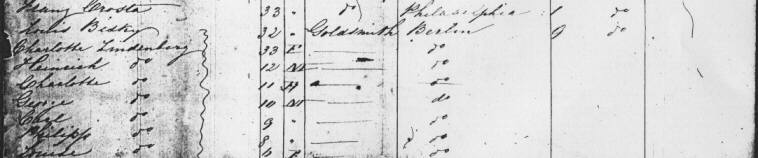 Henry Crosta 33 " do Philadelphia 1 do
Louis Bidky 32 " Goldsmith Berlin 9 do
Charlotte Lindenberg 33 F do
Heinrich do 12 M do
Charlotte do 11 F do
George do 10 M do
Carl do 9 " do
Philipp do 8 " do
Louise do 6 F do